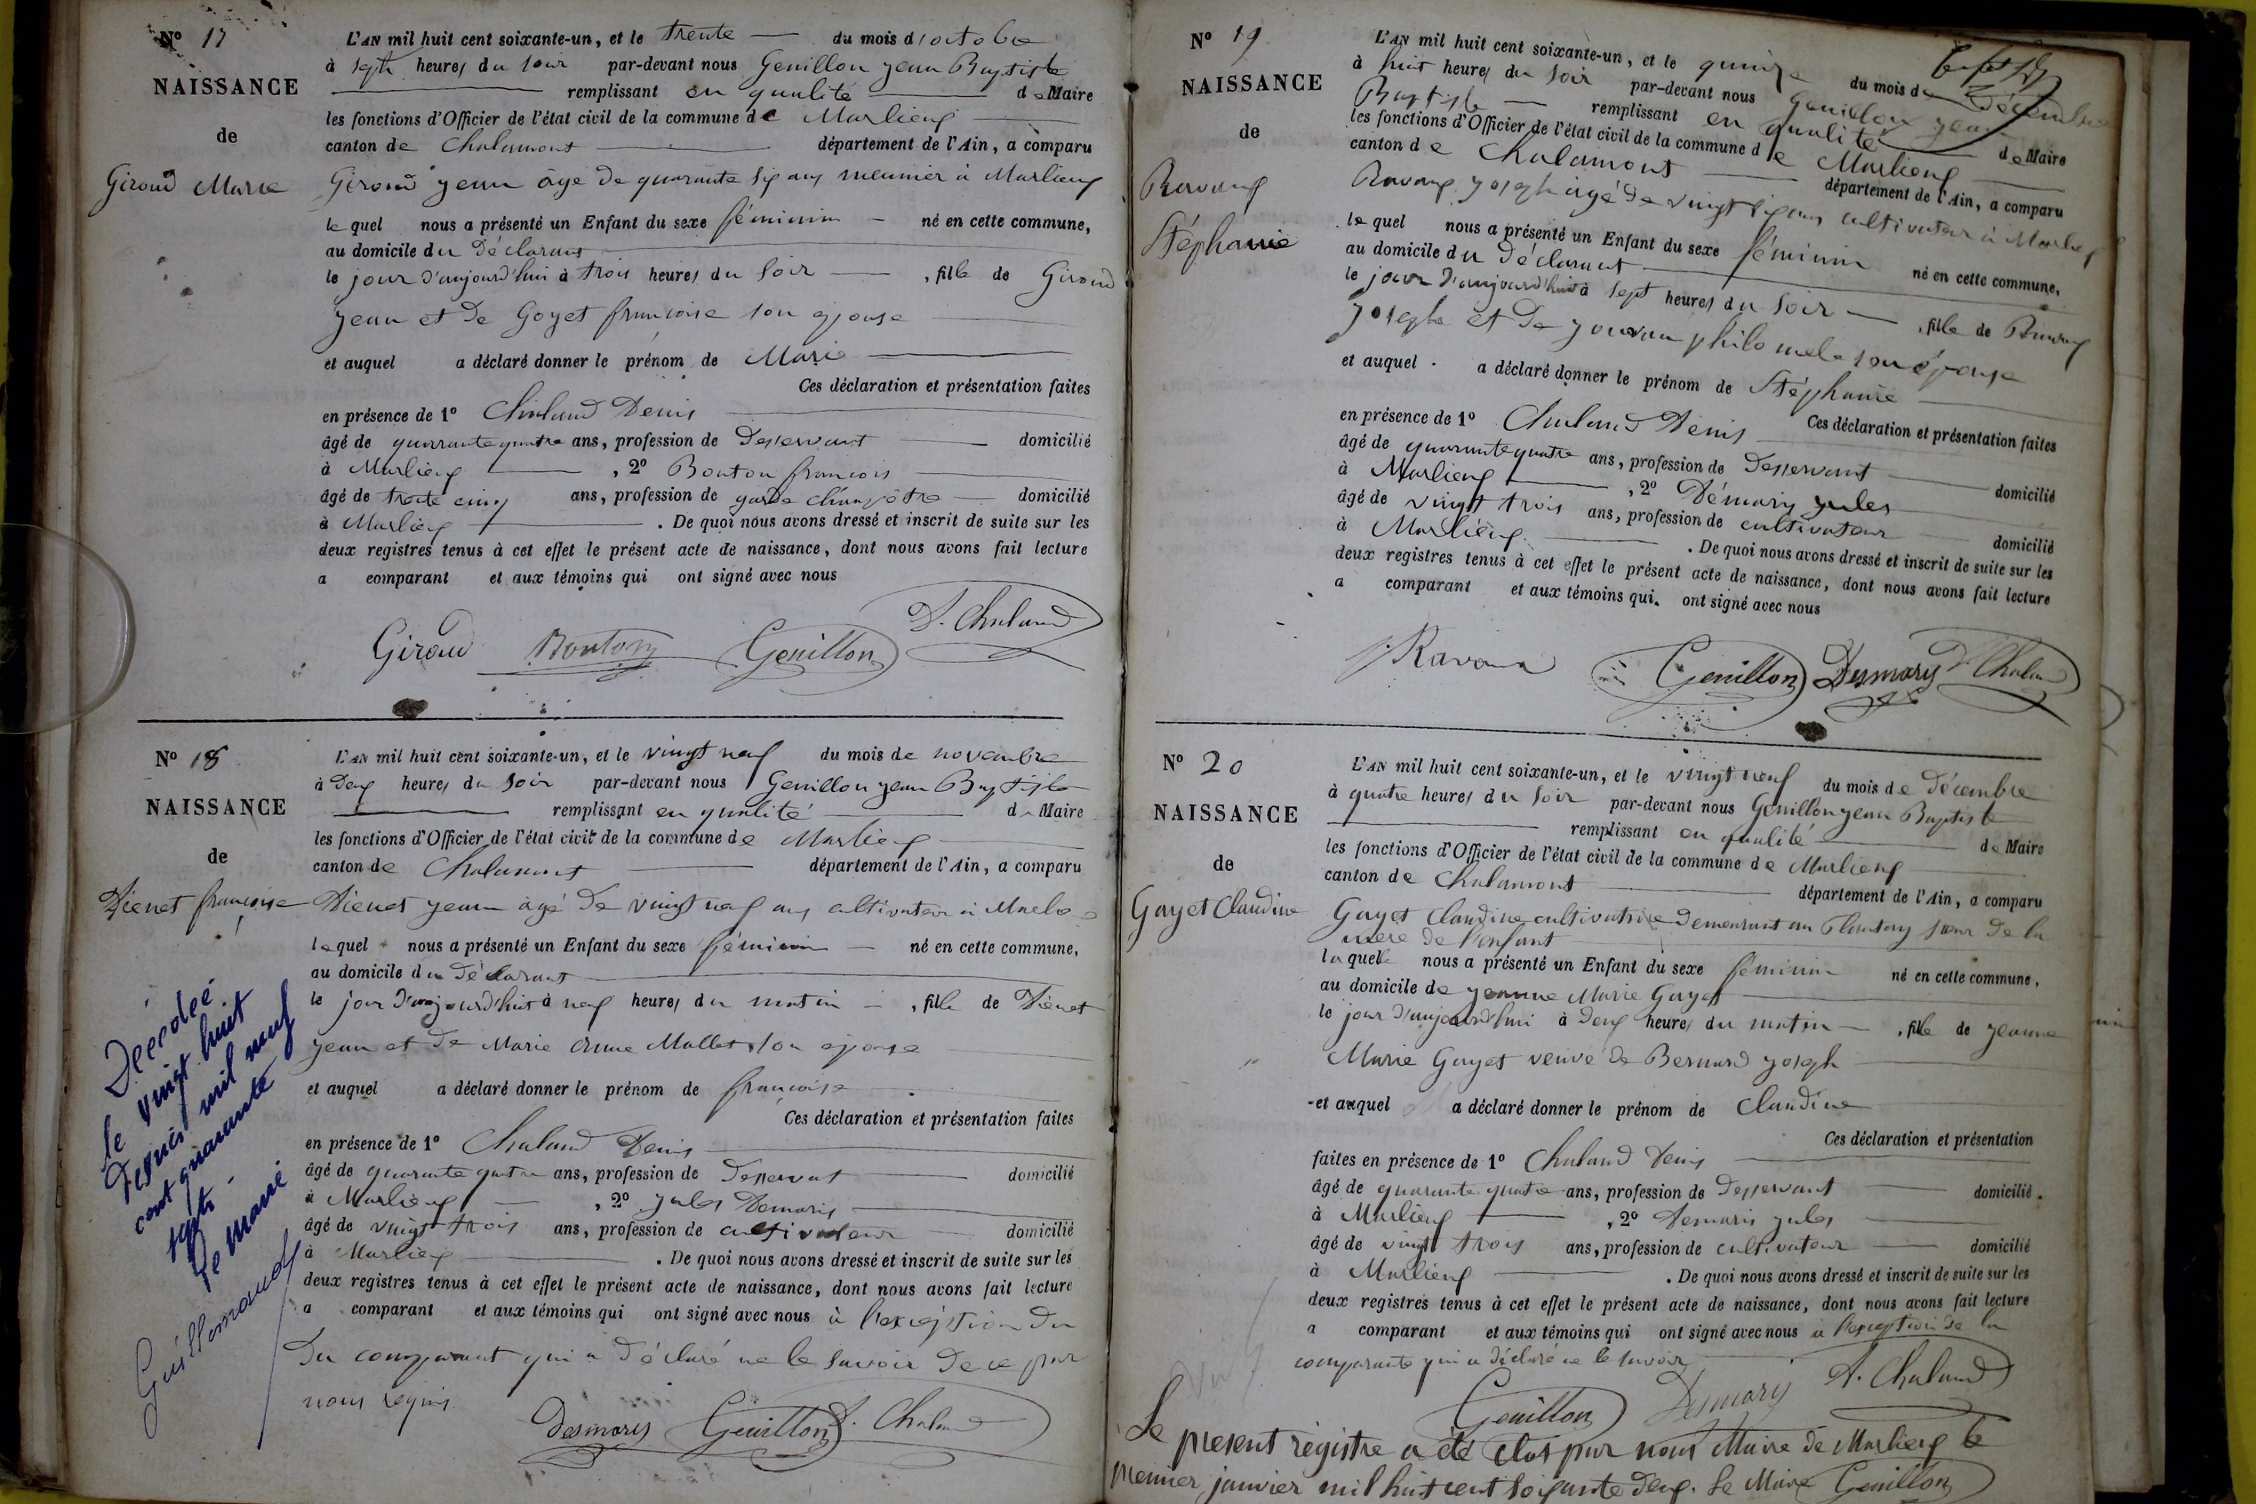 N° 17
NAISSANCE
de
Giroud Marie
L'AN mil huit cent soixante-un, et le trente du mois d'octobre
à sept heures du soir par-devant nous Genillon jean Baptiste
remplissant en qualité de Maire
les fonctions d'Officier de l'état civil de la commune de Marlieux
canton de Chalamont département de l'Ain, a comparu
Giroud jean âgé de quarante six ans meunier à Marlieux
le quel nous a présenté un Enfant du sexe féminin né en cette commune,
au domicile du déclarant
le jour d'aujourd'hui à trois heures du soir , fille de Giroud
jean et de Goyet françoise son épouse
et auquel a déclaré donner le prénom de Marie
Ces déclaration et présentation faites
en présence de 1° Chaland Denis
âgé de quarante quatre ans, profession de Desservant domicilié
à Marlieux , 2° Bouton françois
âgé de trente cinq ans, profession de garde champêtre domicilié
à Marlieux . De quoi nous avons dressé et inscrit de suite sur les
deux registres tenus à cet effet le présent acte de naissance, dont nous avons fait lecture
a comparant et aux témoins qui ont signé avec nous
Giroud Bouton Genillon D. Chaland
N° 18
NAISSANCE
de
Diénet françoise
L'AN mil huit cent soixante-un, et le vingt neuf du mois de novembre
à deux heures du soir par-devant nous Genillon jean Baptiste
remplissant en qualité de Maire
les fonctions d'Officier de l'état civil de la commune de Marlieux
canton de Chalamont département de l'Ain, a comparu
Diénet jean âgé de vingt neuf ans cultivateur à
le quel nous a présenté un Enfant du sexe féminin né en cette commune,
au domicile du déclarant
le jour d'aujourd'huit à neuf heures du matin , fille de Diénet
jean et de Marie anne Mallet son épouse
et auquel a déclaré donner le prénom de françoise
Ces déclaration et présentation faites
en présence de 1° Chaland Denis
âgé de quarante quatre ans, profession de Desservant domicilié
à Marlieux , 2° jules Demaris
âgé de vingt trois ans, profession de cultivateur domicilié
à Marlieux . De quoi nous avons dressé et inscrit de suite sur les
deux registres tenus à cet effet le présent acte de naissance, dont nous avons fait lecture
a comparant et aux témoins qui ont signé avec nous à l'exception du
du comparant qui a déclaré ne le savoir de ce par
nous requis
Desmaris Genillon D. Chaland
Décédée
le vingt huit
mil neuf
cent quarante
sept.
Le Maire
N° 19
NAISSANCE
de
Ravaux
Stéphanie
L'AN mil huit cent soixante-un, et le quinze du mois de décembre
à huit heures du soir par-devant nous Genillon jean
Baptiste remplissant en qualité de Maire
les fonctions d'Officier de l'état civil de la commune de Marlieux
canton de Chalamont département de l'Ain, a comparu
Ravaux joseph âgé de vingt six ans cultivateur à Marlieux
le quel nous a présenté un Enfant du sexe féminin né en cette commune,
au domicile du déclarant
le jour d'aujourd'hui à sept heures du soir , fille de Ravaux
joseph et de philomele son épouse
et auquel a déclaré donner le prénom de Stéphanie
Ces déclaration et présentation faites
en présence de 1° Chaland Denis
âgé de quarante quatre ans, profession de Desservant domicilié
à Marlieux , 2° Démaris jules
âgé de vingt trois ans, profession de cultivateur domicilié
à Marlieux . De quoi nous avons dressé et inscrit de suite sur les
deux registres tenus à cet effet le présent acte de naissance, dont nous avons fait lecture
a comparant et aux témoins qui ont signé avec nous
Genillon Desmaris D. Chaland
N° 20
NAISSANCE
de
Gayet Claudine
L'AN mil huit cent soixante-un, et le vingt neuf du mois de décembre
à quatre heures du soir par-devant nous Genillon jean Baptiste
remplissant en qualité de Maire
les fonctions d'Officier de l'état civil de la commune de Marlieux
canton de Chalamont département de l'Ain, a comparu
Gayet Claudine cultivatrice demeurant au Plantay sœur de la
mère de l'enfant
la quelle nous a présenté un Enfant du sexe féminin né en cette commune,
au domicile de jeanne Marie Gayet
le jour d'aujourd'hui à deux heures du matin , fille de jeanne
Marie Gayet veuve de Bernard joseph
et auquel a déclaré donner le prénom de Claudine
Ces déclaration et présentation
faites en présence de 1° Chaland Denis
âgé de quarante quatre ans, profession de Desservant domicilié
à Marlieux , 2° Demaris jules
âgé de vingt trois ans, profession de cultivateur domicilié
à Marlieux . De quoi nous avons dressé et inscrit de suite sur les
deux registres tenus à cet effet le présent acte de naissance, dont nous avons fait lecture
a comparant et aux témoins qui ont signé avec nous à l'exception de la
comparante qui a déclaré ne le savoir
Genillon Desmaris D. Chaland
Le présent registre a été clos par nous Maire de Marlieux le
premier janvier mil huit cent soixante deux. Le Maire Genillon